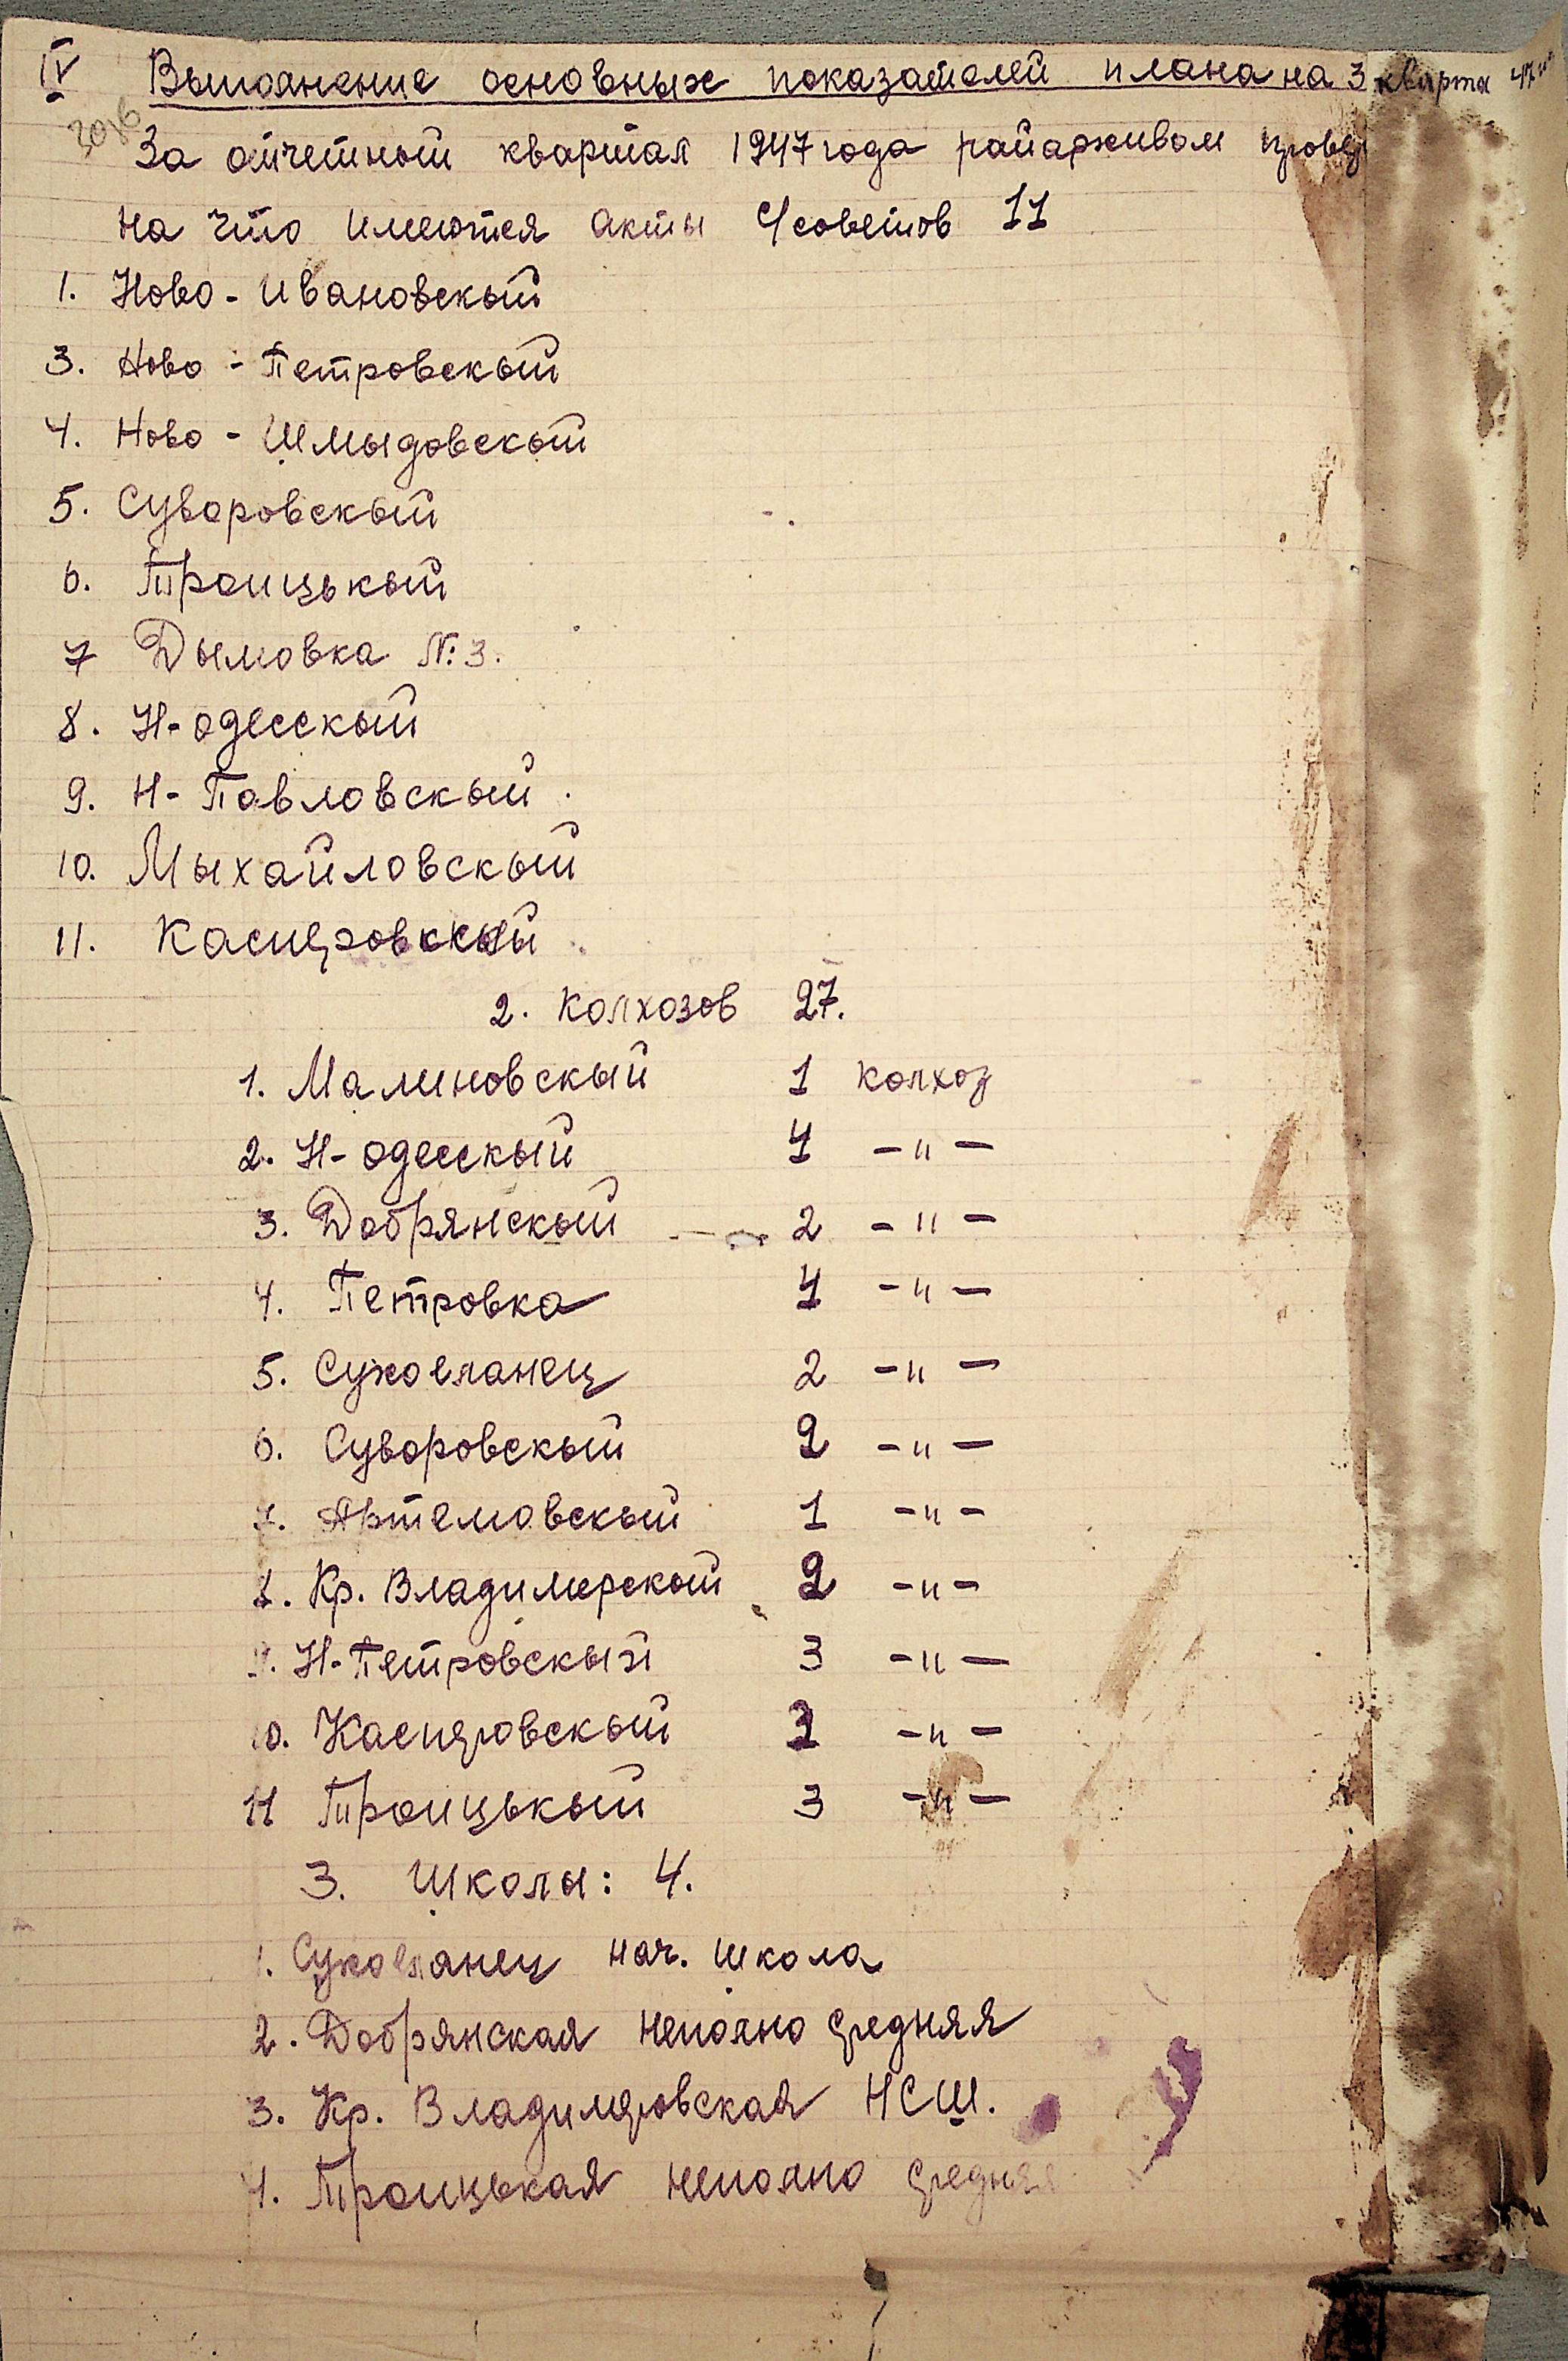 IV Выполнение основных показателей плана на 3 кварта
За отчетный квартал 1947 года райархивом
на что имеются акты С/советов 11
1. Ново - Ивановскый
3. Ново - Петровскый
4. Ново - Шмыдовскый
5. Суворовскый
6. Троицькый
7 Дымовка №: 3.
8. Н-одесскый
9. Н-Павловскый.
10. Мыхайловскый
11. Касперовскый
2. Колхозов 27.
1. Малиновскый 1 колхоз
2. Н-одесскый 4 -"-
3. Добрянскый 2 -"-
4. Петровка 4 -"-
5. Сухоеланец 2 -"-
6. Суворовскый 2 -"-
7. Артемовскый 1 -"-
8. Кр. Владимерскый 2 -"-
9. Н-Петровскый 3 -"-
10. Касперовскый -"-
11 Троицькый 3 -"-
3. Школы: 4.
1. Сухоеланец нач. школа
2. Добрянская неполно средняя
3. Кр. Владимеровская НСШ.
4. Троицькая неполно средняя